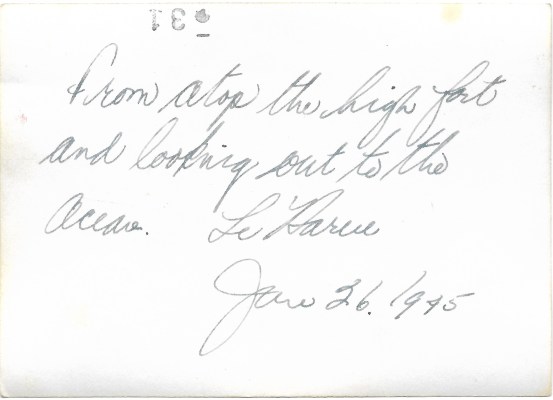 31
From atop the high fort
and looking out to the
Ocean. Le'Harve
Jan 26. 1945